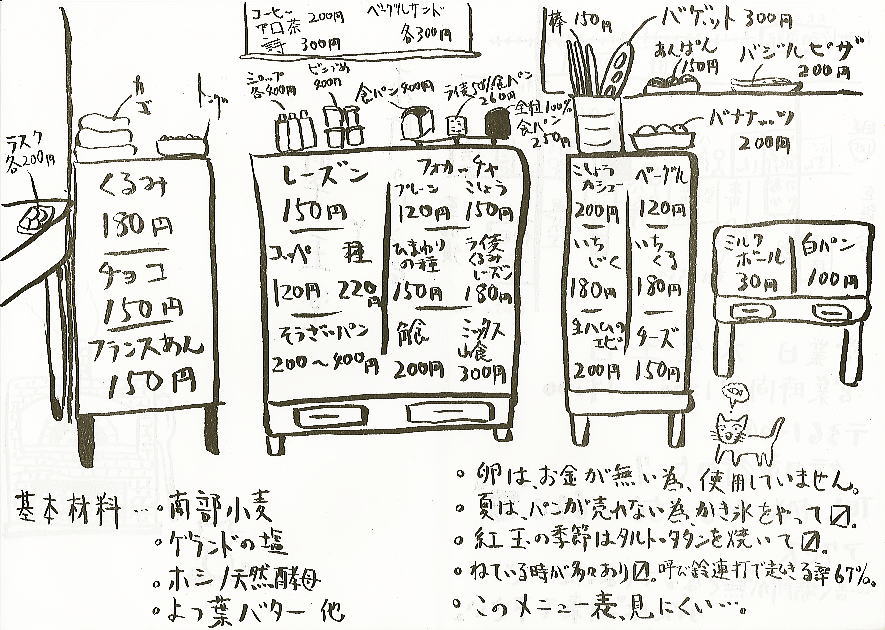 コーヒー 200円
アロ茶
詩 300円
ベーグルサンド
各300円
棒 150円
バゲット 300円
あんぱん
150円
バジルピザ
200円
バナナッツ
200円
カゴ
トング
ラスク
各200円
シロップ
各400円
ビンづめ
400円
食パン 400円
ライ麦50%食パン
260円
全粒100%
食パン
250円
くるみ
180円
チョコ
150円
フランスあん
150円
レーズン
150円
フォカッチャ
プレーン
120円
こしょう
150円
コッペ
120円
種
220円
ひまわり
の種
150円
ライ麦
くるみ
レーズン
180円
そうざいパン
200〜400円
角食
200円
ミックス
山食
300円
こしょう
カシュー
200円
ベーグル
120円
いち
じく
180円
いち
くる
180円
生ハムの
エピ
200円
チーズ
150円
ミルク
ボール
30円
白パン
100円
基本材料…
・南部小麦
・ゲランドの塩
・ホシノ天然酵母
・よつ葉バター 他
・卵は、お金が無い為、使用していません。
・夏は、パンが売れない為、かき氷をやって〼。
・紅玉の季節はタルト・タタンを焼いて〼。
・ねている時が多々あり〼。呼び鈴連打で起きる率67%。
・このメニュー表、見にくい…。